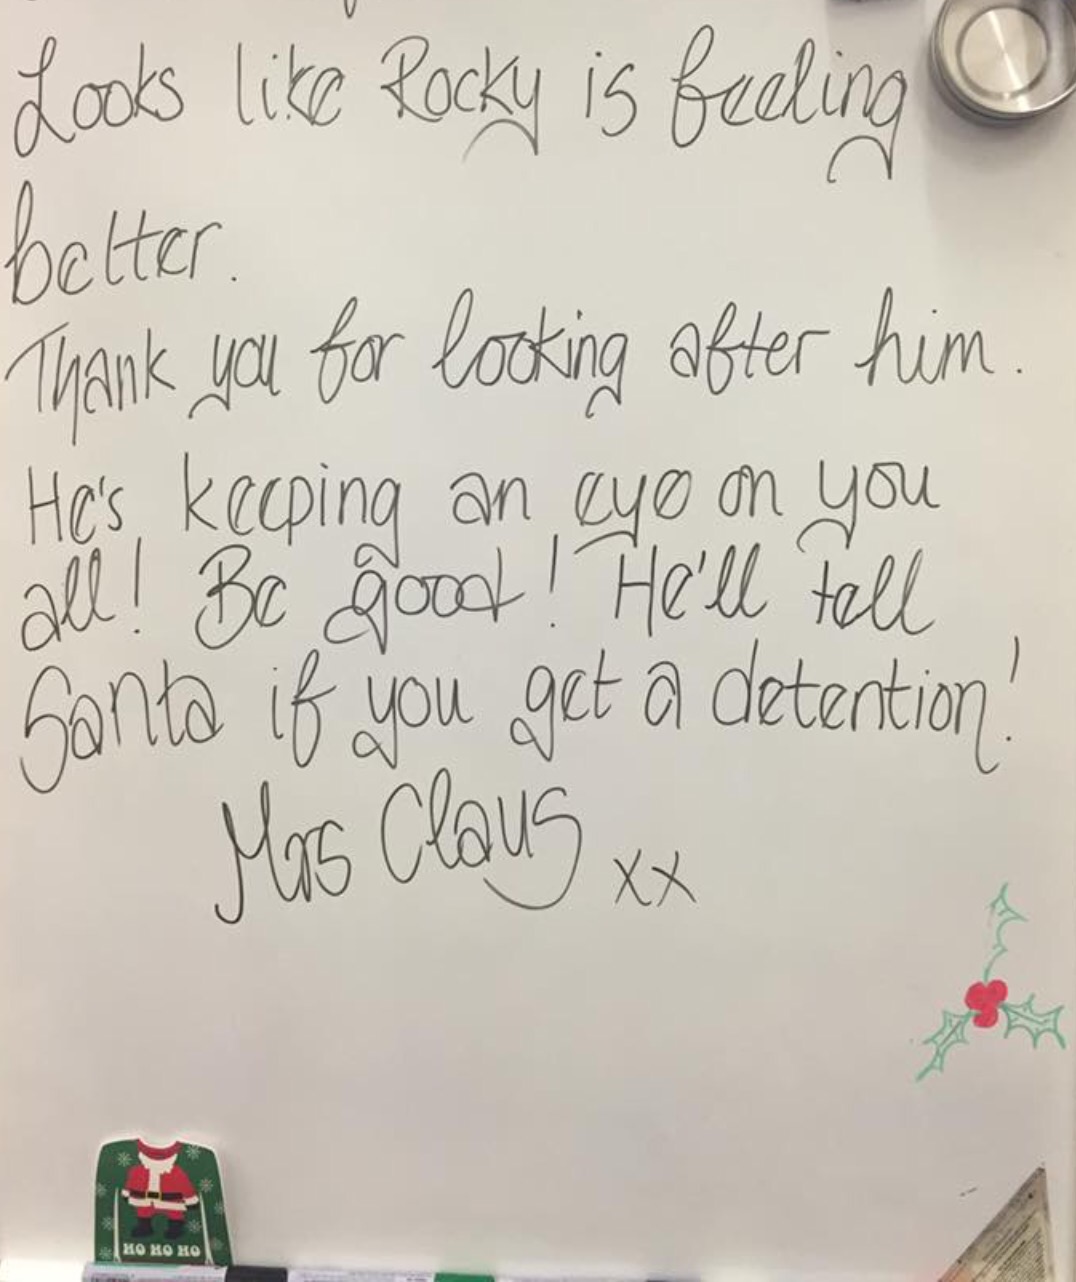 Looks like Rocky is feeling
better.
Thank you for looking after him.
He's keeping an eye on you
all! Be good! He'll tell
Santa if you get a detention!
Mrs Claus xx
HO HO HO